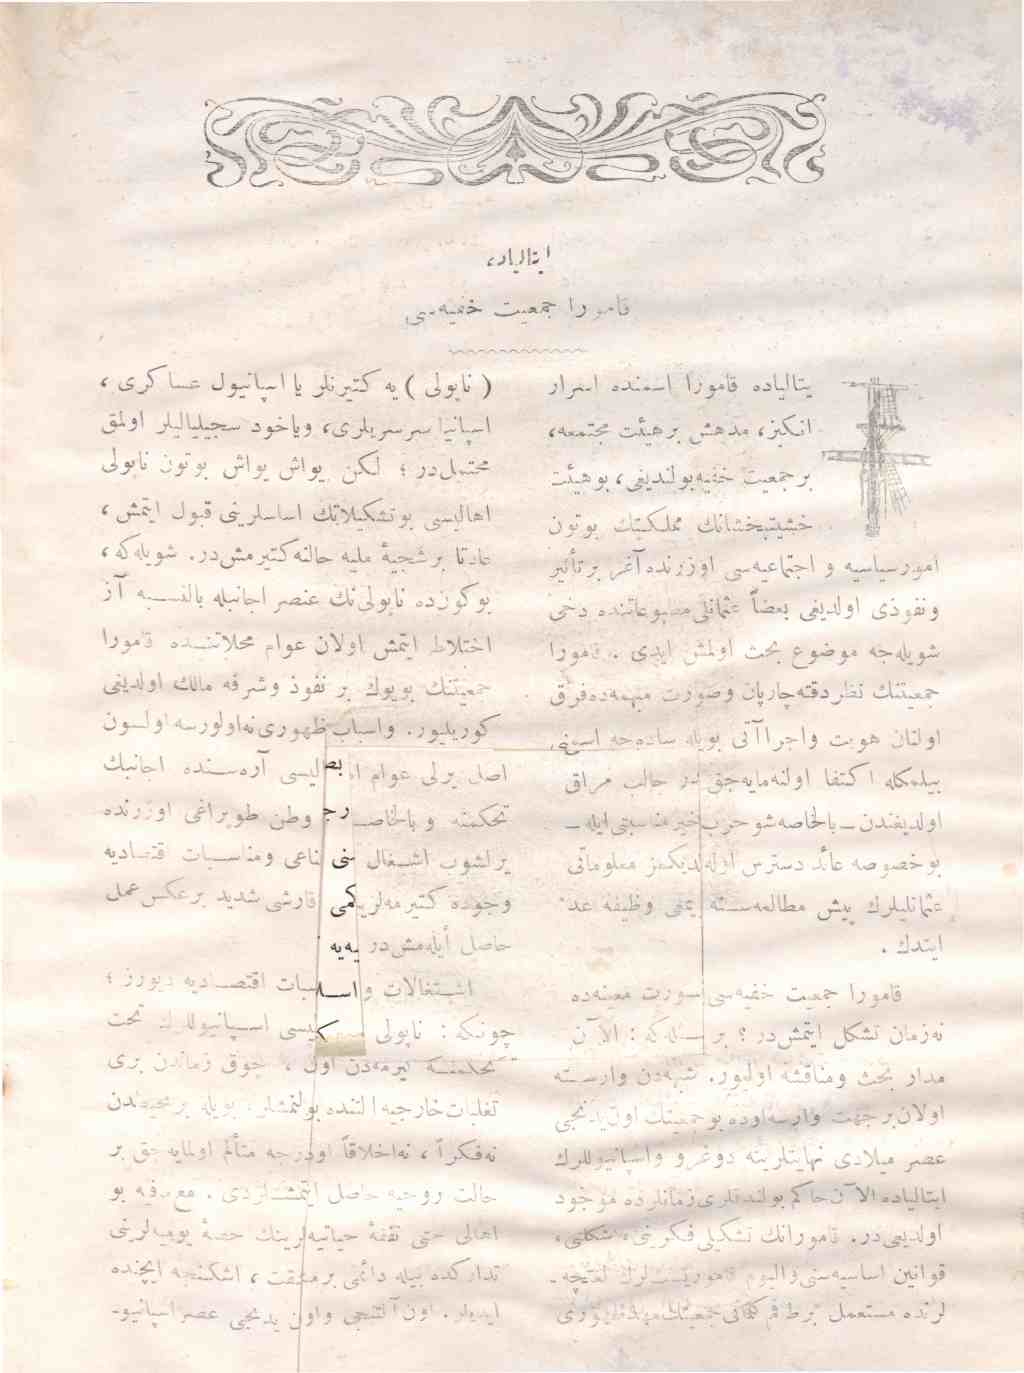 ایتالیاده
قامورا جمعیت خفیه‌سی
یتالیاده قامورا اسمنده اسرار
انكیز، مدهش برهیئت مجتمعه،
برجمعیت خفیه بولندیغی، بوهیئت
خشیتبخشانك مملكتك بوتون
امور سیاسیه و اجتماعیه‌سی اوزرنده آغر برتأثیر
ونفوذی اولدیغی بعضاً عثمانلی مطبوعاتنده دخی
شویله‌جه موضوع بحث اولمش ایدی. قامورا
جمعیتنك نظر دقته چارپان وصورت مبهمه‌ده فرق
اولنان هویت واجراآتی بویله ساده‌جه اسمنی
بیلمكله اكتفا اولنه‌مایه‌جق در جالب مراق
اولدیغندن ـ بالخاصه شو حرب مناسبتی ایله ـ
بوخصوصه عائد دسترس اوله‌بلدیكمز معلوماتی
عثمانلیلرك پیش مطالعه‌سنه وظیفه عد
ایتدك .
قامورا جمعیت خفیه‌سی صورت معینه‌ده
نه‌زمان تشكل ایتمش‌در؟ بر كه: الآن
مدار بحث ومناقشه اولیور. شبهه‌دن وارسته
اولان برجهت وارسه اوده بوجمعیتك اون یدنجی
عصر میلادی نهایتلرینه دوغرو واسپانیوللرك
ایتالیاده الآن حاكم بولندقلری زمانلرده موجود
اولدیغی‌در. قامورانك تشكیلی فكرینی، شكلنی،
قوانین اساسیه‌سنی والیوم
لرنده مستعمل بر
( ناپولی ) یه كتیرنلر یا اسپانیول عساكری ،
اسپانیا سرسریلری، ویاخود سجیلیالیلر اولمق
محتمل‌در ؛ لكن یواش یواش بوتون ناپولی
اهالیسی بوتشكیلاتك اساسلرینی قبول ایتمش ،
عادتا برسجیهٔ ملیه حالنه كتیرمش‌در. شویله‌كه ،
بوكون‌ده ناپولی‌نك عنصر اجانبله بالنسبه آز
اختلاط ایتمش اولان عوام محلاتنده قامورا
جمعیتنك بویوك بر نفوذ وشرفه مالك اولدیغی
كوریلیور. واسباب ظهوری نه‌اولورسه اولسون
اصل یرلی عوام الیسی آره‌سنده اجانبك
تحكمنه وبالخاصه وطن طوپراغی اوزرنده
یرلشوب اشغال ناعی ومناسبات اقتصادیه
وجوده كتیرمه‌لرینه قارشی شدید برعكس عمل
حاصل ایله‌مش‌در
اشتغالات و اقتصادیه دیورز ؛
چونكه : ناپولی اسپانیوللرك تحت
تحكمنه كیرمه‌دن اول ، چوق زماندن بری
تغلبات خارجیه آلتنده بولنمشلر، بویله برمحیطدن
نه‌فكراً ، نه‌اخلاقاً اودرجه متألم اولمایه‌جق بر
حالت روحیه حاصل ایتمشلردی . مع‌مافیه بو
اهالی حتی نفقهٔ حیاتیه‌لرینك حصهٔ یومیه‌لرینی
تداركده بیله دائمی برمشقت ، اشكنجه ایچنده
ایدیلر. اون آلتنجی واون یدنجی عصر اسپانیو-